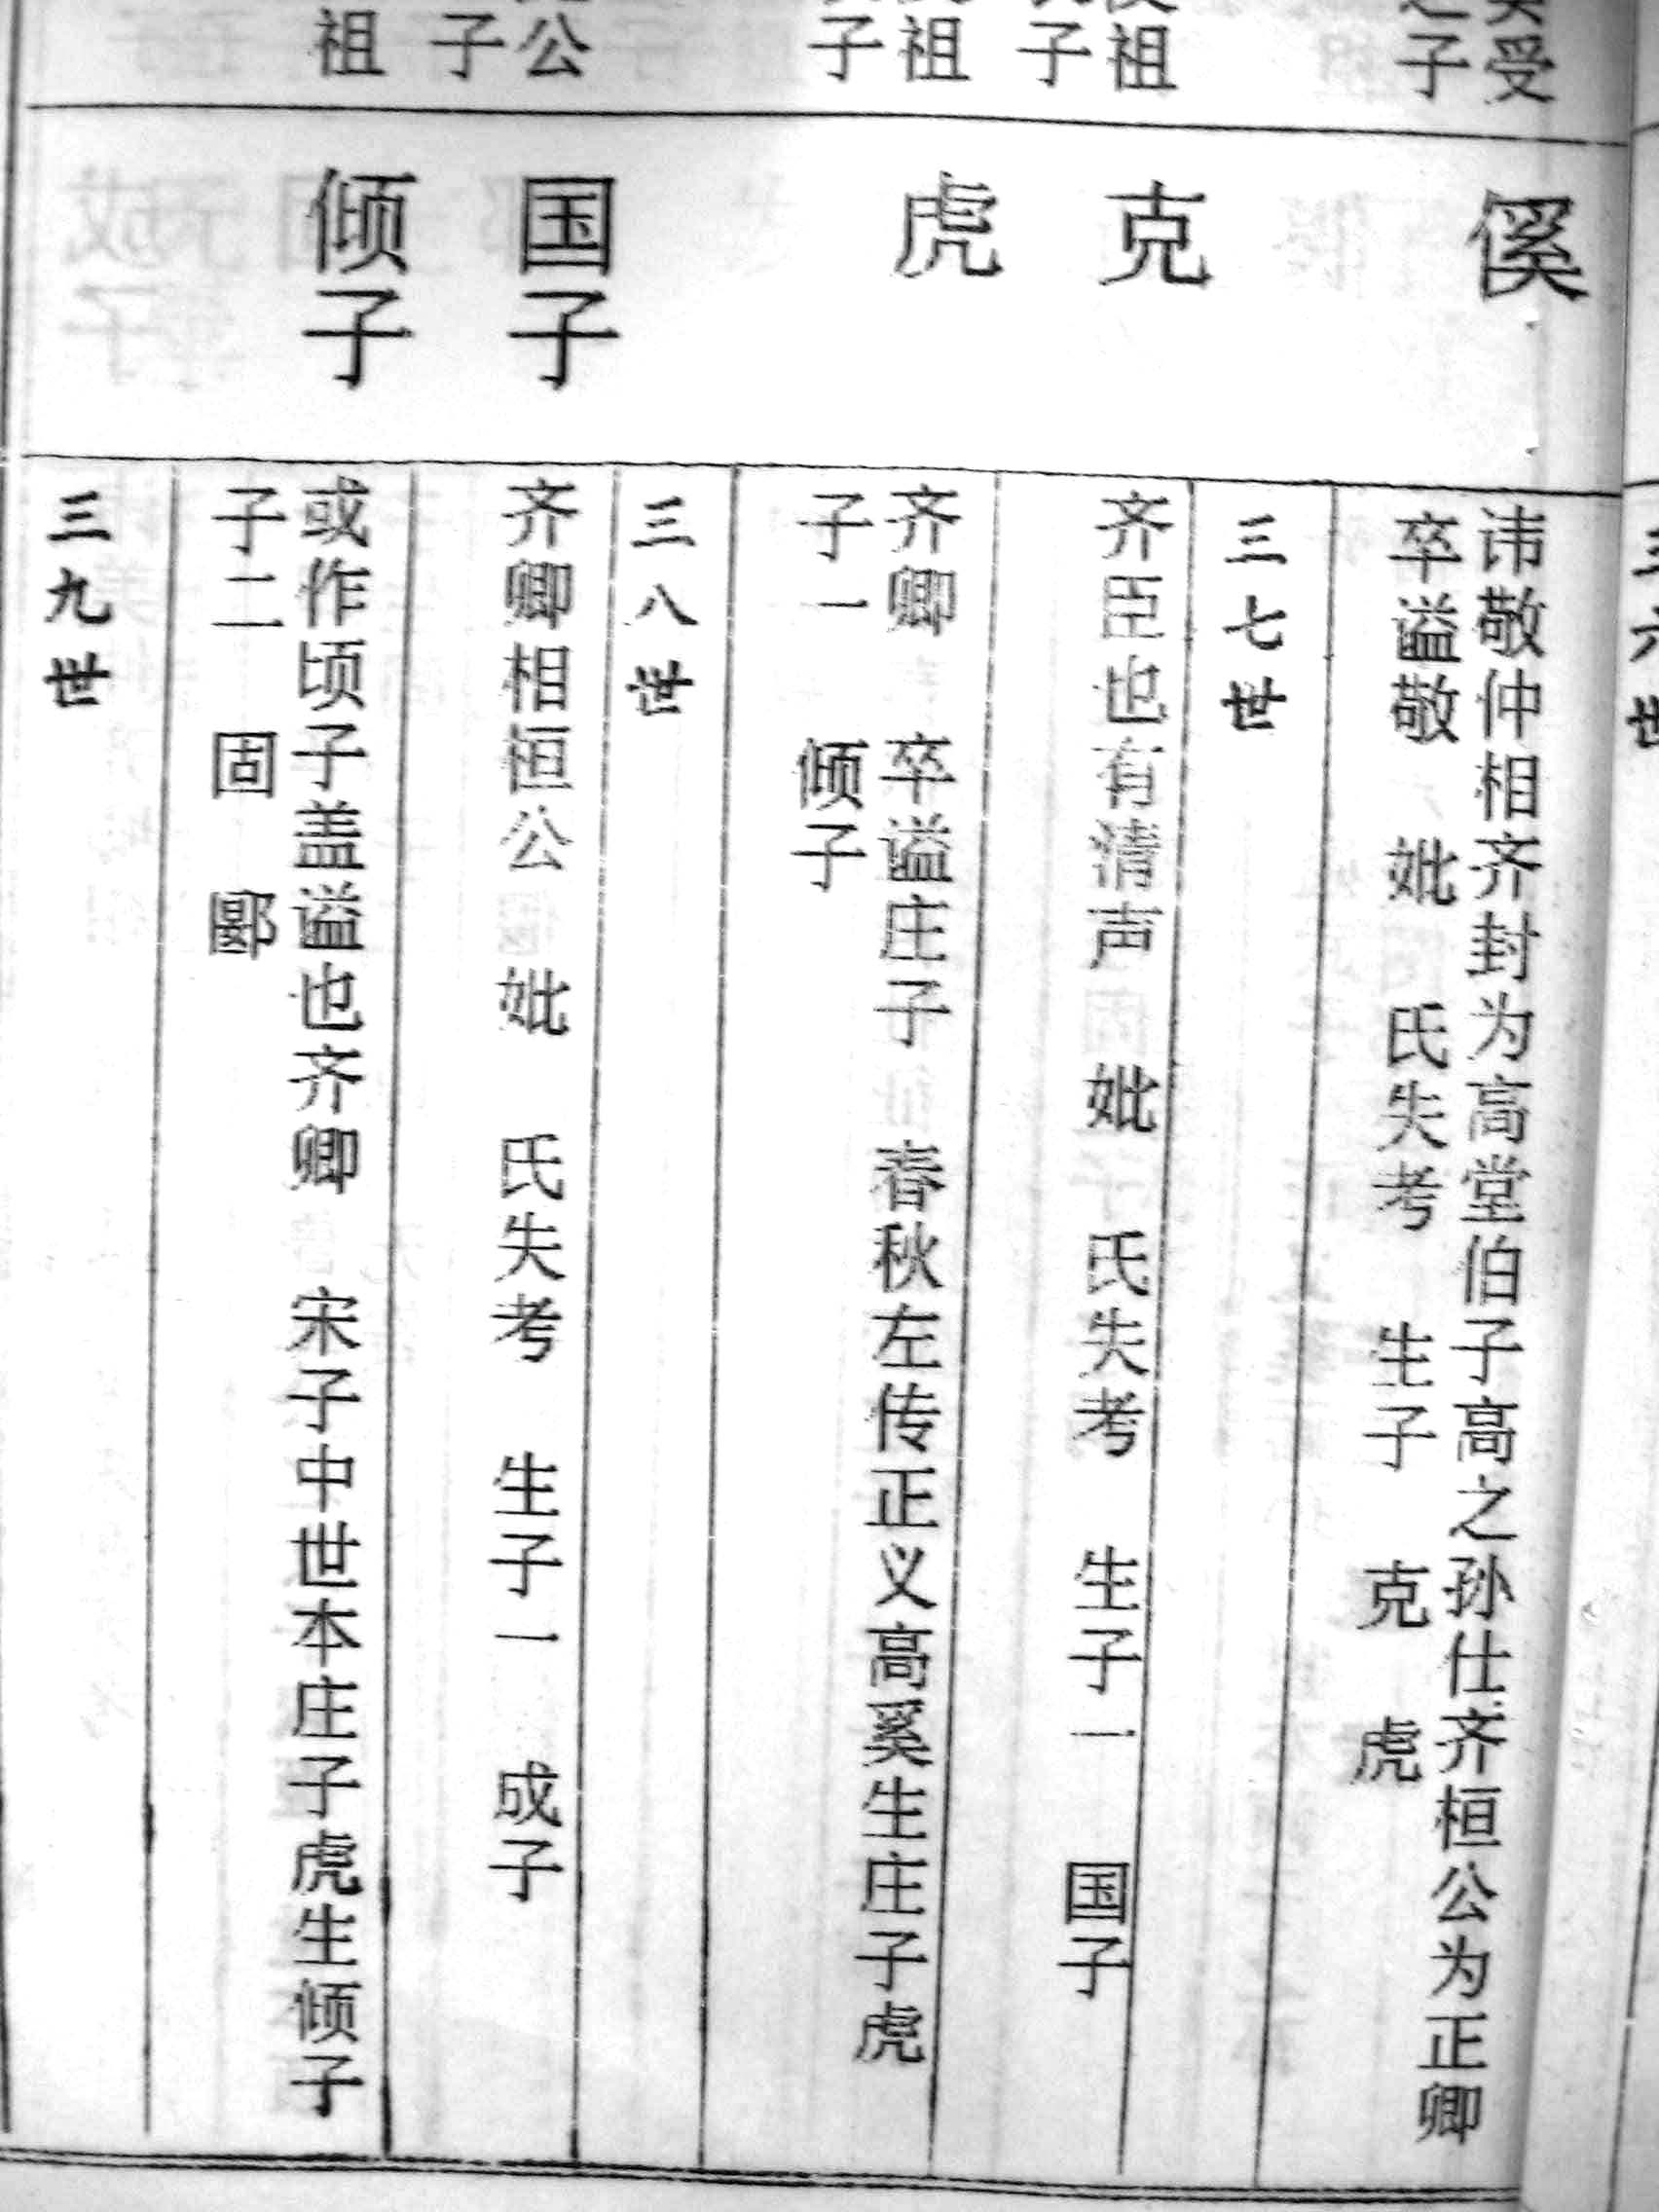 三六世
受
之子
傒
讳敬仲相齐封为高堂伯子高之孙仕齐桓公为正卿
卒谥敬 妣 氏失考 生子 克 虎
三七世
祖
子
克
齐臣也有清声 妣 氏失考 生子一 国子
祖
子
虎
齐卿 卒谥庄子 春秋左传正义高奚生庄子虎
子一 倾子
三八世
公
子
国子
齐卿相恒公 妣 氏失考 生子一 成子
祖
倾子
或作顷子盖谥也齐卿 宋子中世本庄子虎生倾子
子二 固 酀
三九世